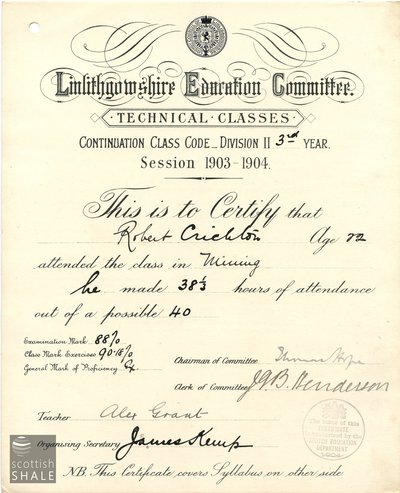 Linlithgowshire Education Committee.
TECHNICAL CLASSES
CONTINUATION CLASS CODE_DIVISION II 3rd YEAR.
Session 1903-1904.
This is to Certify that
Robert Crichton Age 22
attended the class in Mining
he made 38½ hours of attendance
out of a possible 40
Examination Mark 88%
Class Mark Exercises 90·18%
General Mark of Proficiency Ex
Chairman of Committee Thomas Hope
Clerk of Committee J.G.B. Henderson
Teacher Alex Grant
Organising Secretary James Kemp
NB. This Certificate covers Syllabus on other side
The issue of this
CERTIFICATE
is authorised by the
SCOTCH EDUCATION
DEPARTMENT
1904.
scottish
SHALE